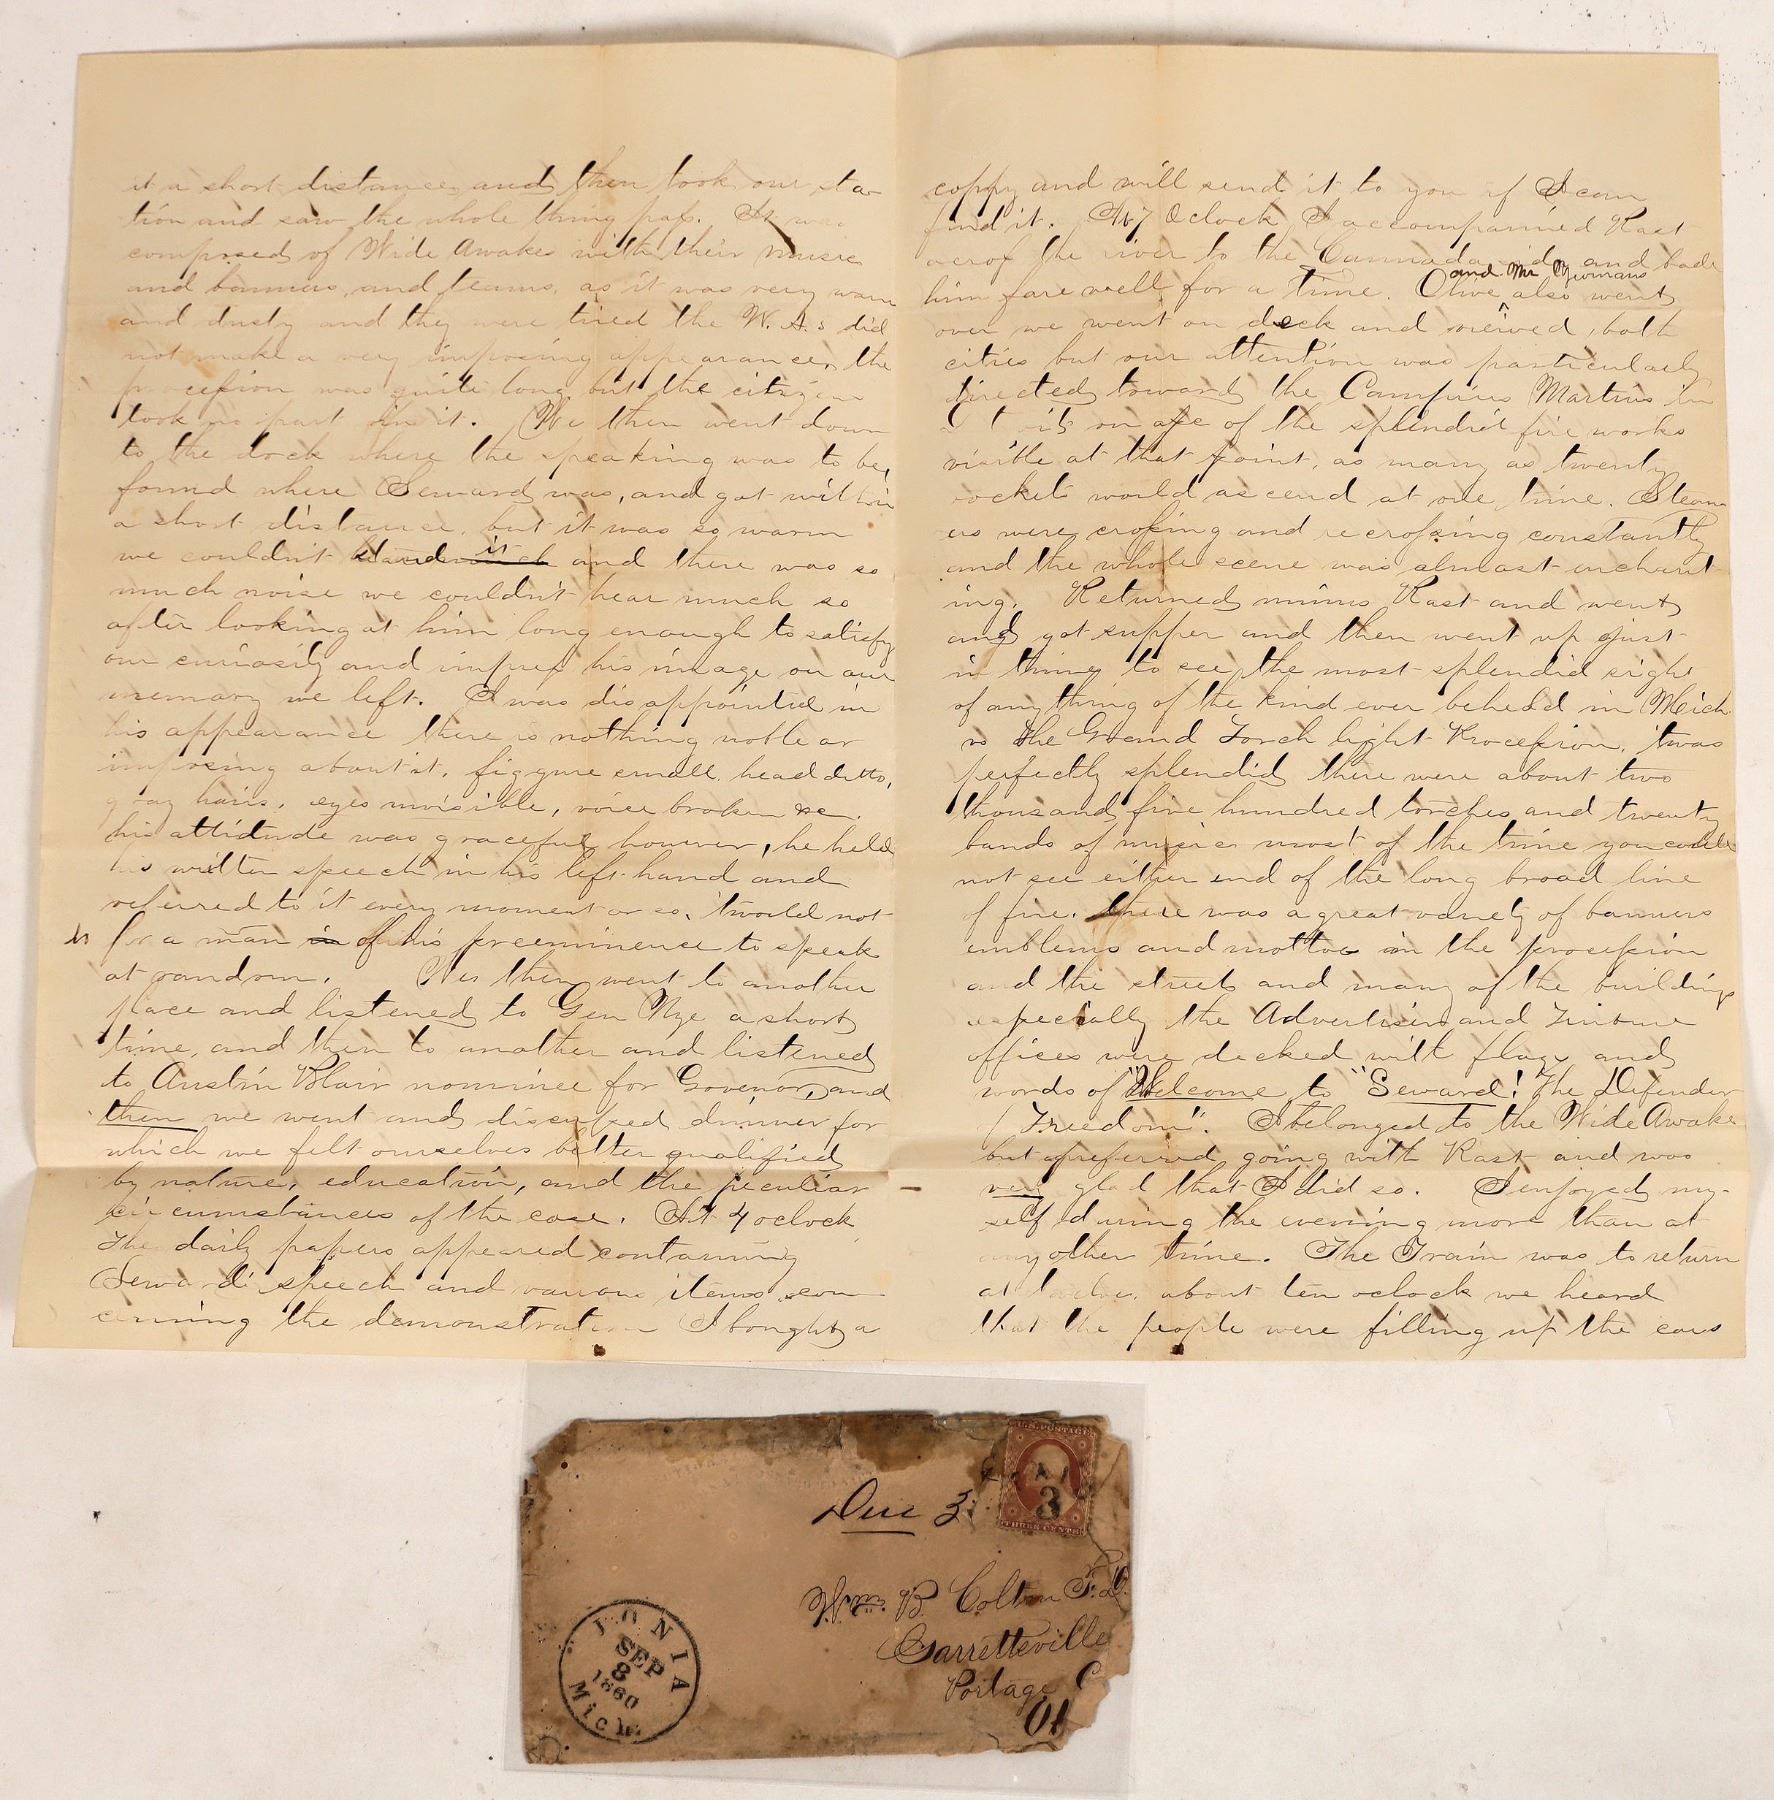 it a short distance and then took our sta-
tion and saw the whole thing pass. It was
composed of Wide Awakes with their music
and banners, and teams, as it was very warm
and dusty and they were tired the W. A.s did
not make a very imposing appearance, the
procession was quite long but the citizens
took no part in it. We then went down
to the dock where the speaking was to be,
found where Seward was, and got within
a short distance, but it was so warm
we couldn't stand it and there was so
much noise we couldn't hear much so
after looking at him long enough to satisfy
our curiosity and impress his image on our
memory we left. I was disappointed in
his appearance there is nothing noble or
imposing about it, figgure small, head ditto,
gray hairs, eyes invisible, voice broken &c.
his attidude was graceful however, he held
his written speech in his left hand and
referred to it every moment or so, 'twould not
for a man in of his preeminence to speak
at random. We then went to another
place and listened to Gen Nye a short
time, and then to another and listened
to Austin Blair nominee for Govenor, and
then we went and discussed dinner for
which we felt ourselves better qualified
by nature, education, and the peculiar
circumstances of the case. At 4 oclock
The daily papers appeared containing
Sewards speech and various items con-
cerning the demonstration I bought a
coppy and will send it to you if I can
find it. At 7 Oclock I accompanied Rast
across the river to the Cannada side and bade
him farewell for a time. Olive and Mr Yeomans also went
over we went on deck and viewed both
cities but our attention was particularly
directed towards the Campus Martius in
of the splendid fire works
visible at that point, as many as twenty
rockets would ascend at one time. Steam
ers were crossing and recrossing constantly
and the whole scene was almost enchant
ing. Returned minus Rast and went
and got supper and then went up just
in time to see the most splendid sight
of anything of the kind ever beheld in Mich.
The Grand Torch light Procession, 'twas
perfectly splendid there were about two
thousand five hundred torches and twenty
bands of music most of the time you could
not see either end of the long broad line
of fire. there was a great variety of banners
emblems and mottoes in the procession
and the streets and many of the buildings
especially the Advertiser and Tribune
offices were decked with flags and
words of "Welcome to "Seward! The Defender
of Freedom". I belonged to the Wide Awake
but preferred going with Rast and was
very glad that I did so. I enjoyed my-
self during the evening more than at
any other time. The Train was to return
at twelve, about ten oclock we heard
that the people were filling up the cars
Due 3
3
THREE CENTS
Wm. B. Colton
Garrettsville
Portage C
IONIA
SEP
8
1860
Mich.